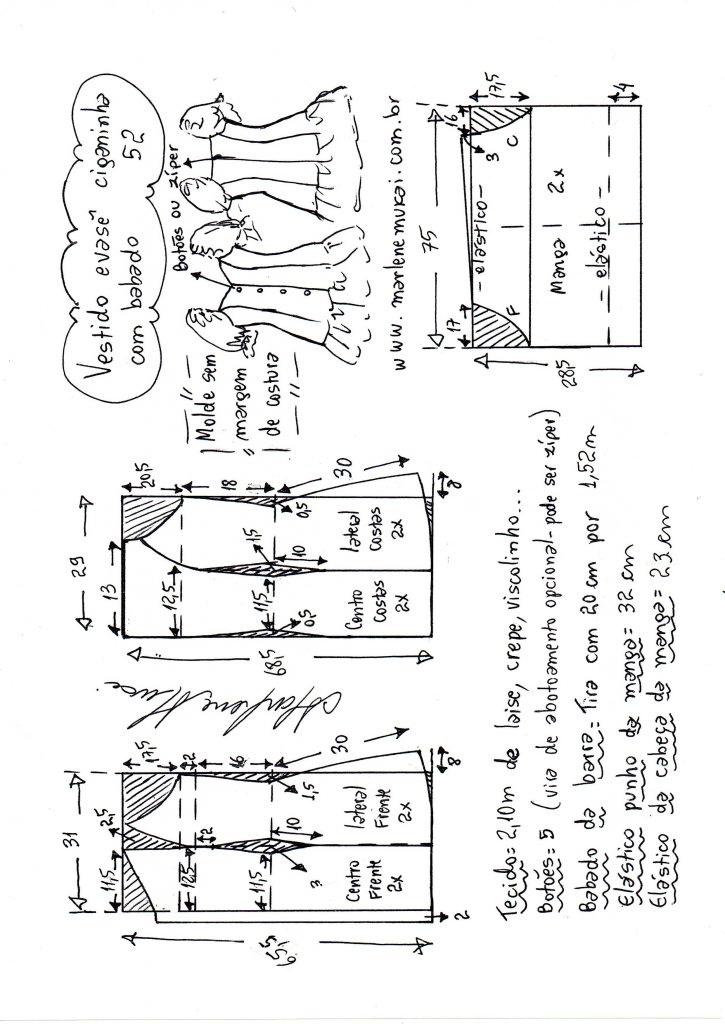 Vestido evasê ciganinha
com babado 52
Botões ou zíper
Molde sem
margem
de costura
www.marlenemukai.com.br
31
11,5
2,5
17,5
2
12,5
2
16
11,5
3
1,5
10
30
8
2
65,5
Centro
Frente
2x
lateral
Frente
2x
29
13
20,5
18
12,5
11,5
0,5
1,5
10
0,5
30
8
68,5
Centro
Costas
2x
lateral
Costas
2x
75
17
6
17,5
3
F
C
- elástico -
Manga 2x
- elástico -
4
28,5
Tecido= 2,10m de laise, crepe, viscolinho...
Botões= 5 (vira de abotoamento opcional-pode ser zíper)
Babado da barra= Tira com 20 cm por 1,52m
Elástico punho da manga= 32 cm
Elástico da cabeça da manga= 23 cm